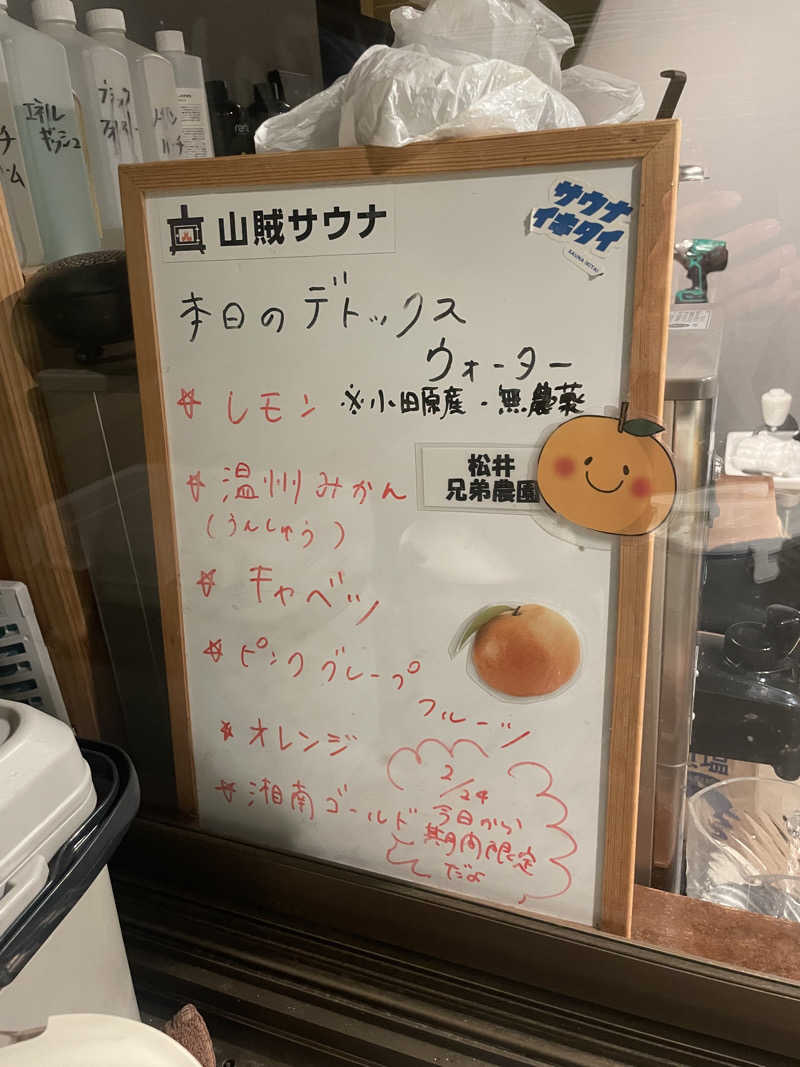 エネル
ギッシュ
山賊サウナ
サウナ
イキタイ
SAUNA IKITAI
本日のデトックス
ウォーター
☆ レモン ※小田原産・無農薬
☆ 温州みかん
(うんしゅう)
松井
兄弟農園
☆ キャベツ
☆ ピンクグレープ
フルーツ
☆ オレンジ
☆ 湘南ゴールド
2/24
今日から
期間限定
だよ